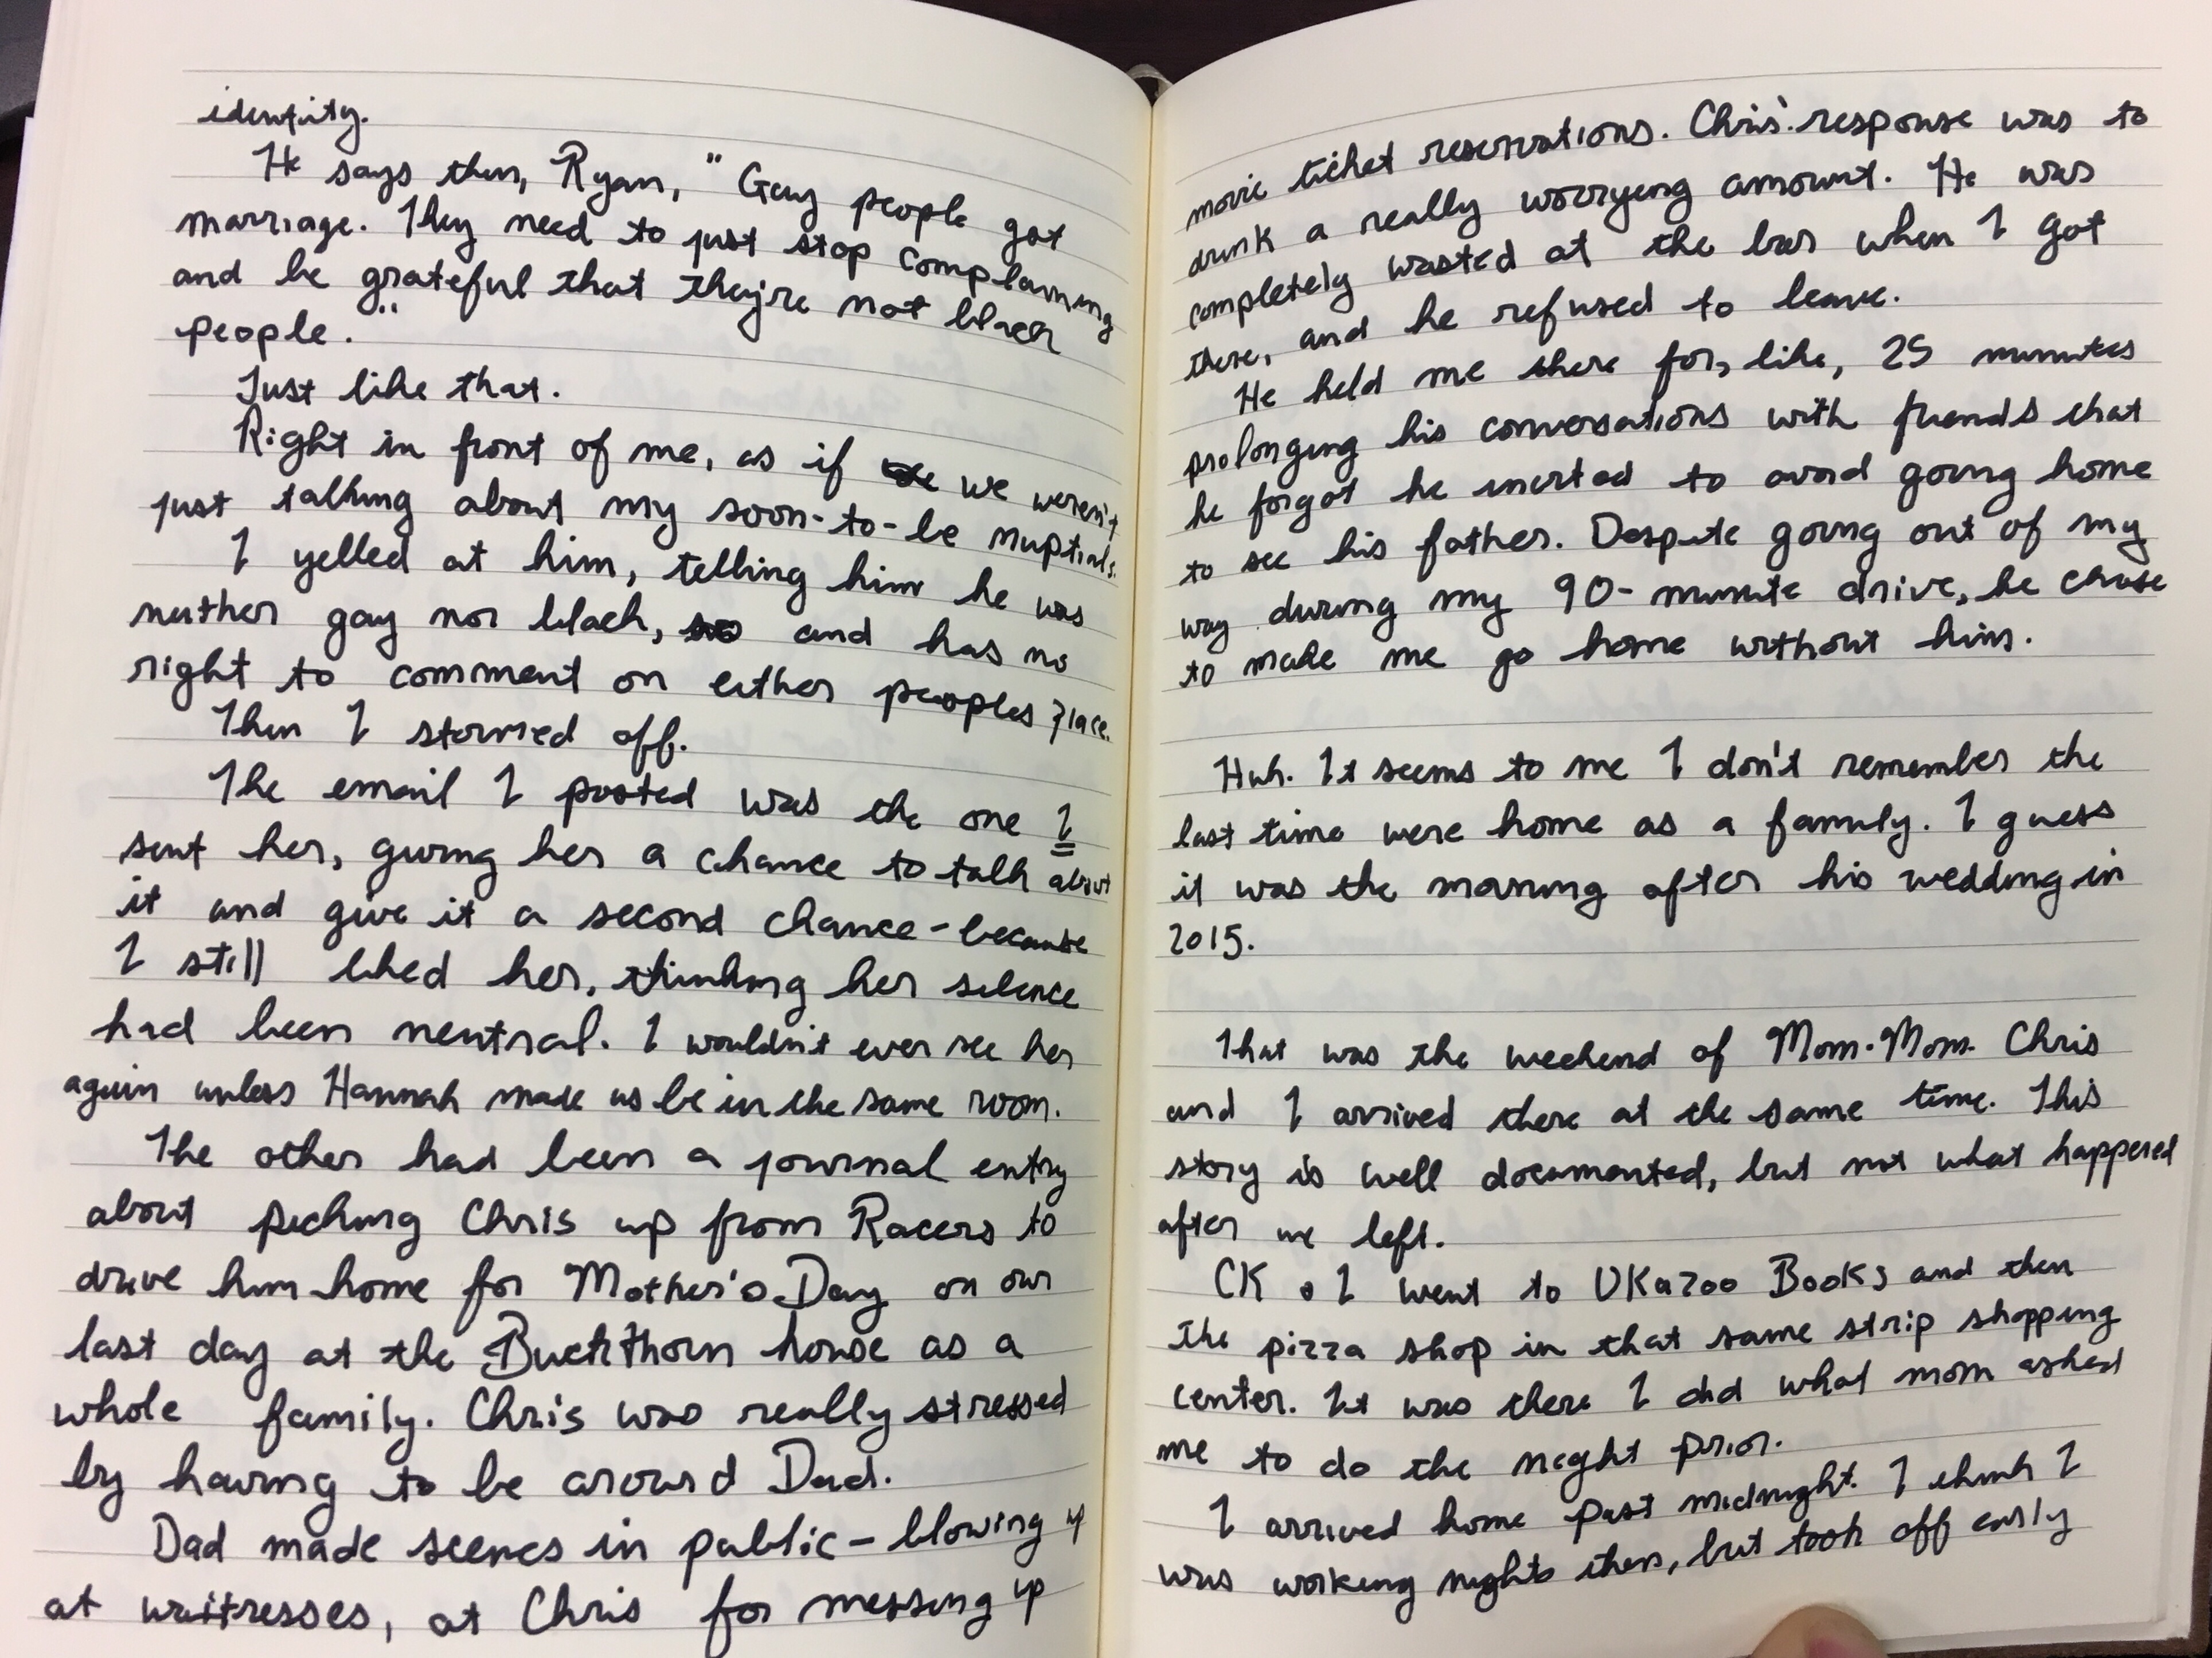 identity.
He says then, Ryan, "Gay people got
marriage. They need to just stop complaining
and be grateful that they're not black
people."
Just like that.
Right in front of me, as if we weren't
just talking about my soon-to-be nuptials.
I yelled at him, telling him he was
neither gay nor black, and has no
right to comment on either peoples place.
Then I stormed off.
The email I posted was the one I
sent her, giving her a chance to talk about
it and give it a second chance - because
I still liked her, thinking her silence
had been neutral. I wouldn't ever see her
again unless Hannah made us be in the same room.
The other had been a journal entry
about picking Chris up from Racers to
drive him home for Mother's Day on our
last day at the Buckthorn house as a
whole family. Chris was really stressed
by having to be around Dad.
Dad made scenes in public - blowing up
at waitresses, at Chris for messing up
movie ticket reservations. Chris' response was to
drink a really worrying amount. He was
completely wasted at the bar when I got
there, and he refused to leave.
He held me there for, like, 25 minutes
prolonging his conversations with friends that
he forgot he invited to avoid going home
to see his father. Despite going out of my
way during my 90-minute drive, he chose
to make me go home without him.
Huh. It seems to me I don't remember the
last time were home as a family. I guess
it was the morning after his wedding in
2015.
That was the weekend of Mom-Mom. Chris
and I arrived there at the same time. This
story is well documented, but not what happened
after we left.
CK & I went to UKazoo Books and then
the pizza shop in that same strip shopping
center. It was there I did what mom asked
me to do the night prior.
I arrived home past midnight. I think I
was working nights then, but took off early